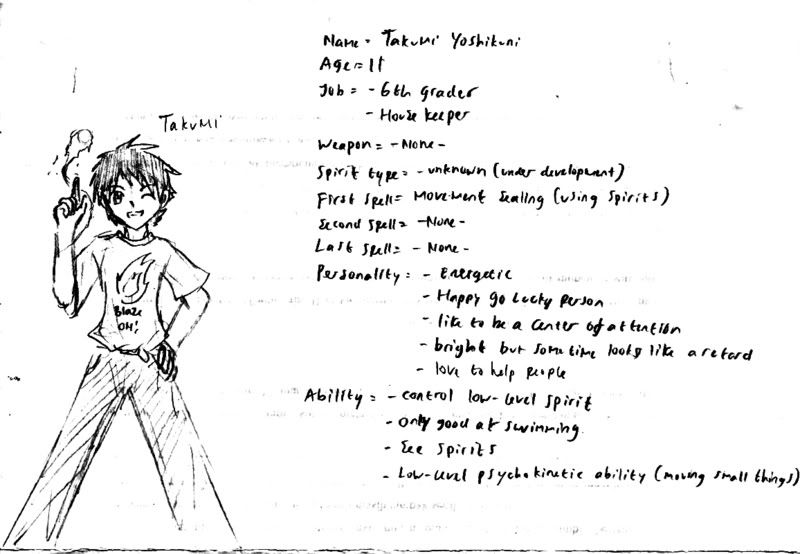 Takumi
Blaze
OH!
Name = Takumi Yoshikuni
Age = 11
Job = - 6th grader
- House keeper
Weapon = - None -
Spirit type = - unknown (under development)
First spell = Movement Sealing (using spirits)
Second spell = - None -
Last spell = - None -
Personality = - Energetic
- Happy go lucky person
- like to be a center of attention
- bright but sometime looks like a retard
- love to help people
Ability = - control low-level spirit
- only good at swimming
- See spirits
- Low-level psychokinetic ability (moving small things)